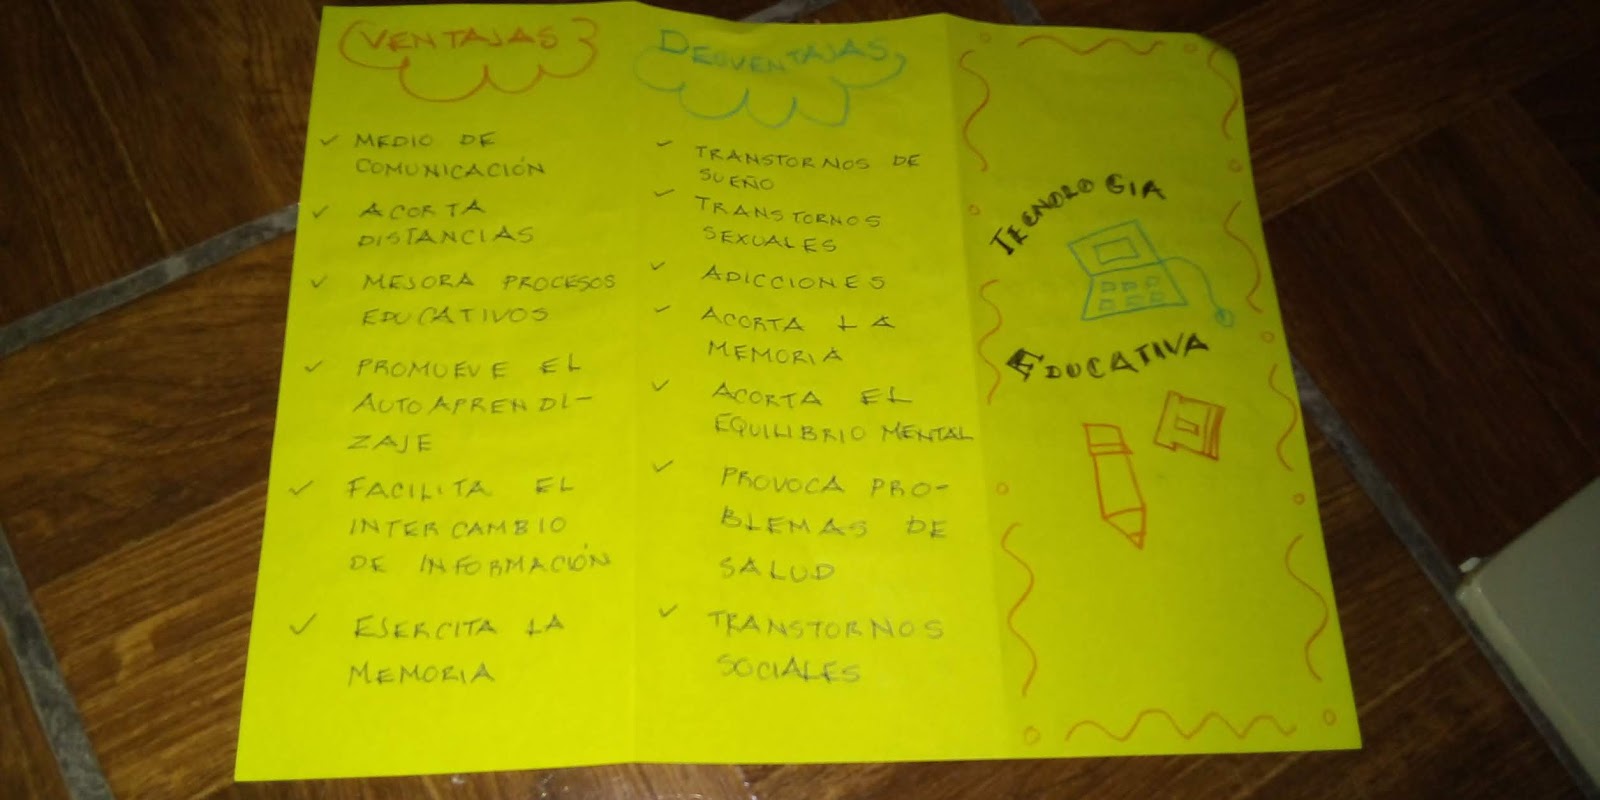 VENTAJAS
✓ MEDIO DE
COMUNICACIÓN
✓ ACORTA
DISTANCIAS
✓ MEJORA PROCESOS
EDUCATIVOS
✓ PROMUEVE EL
AUTOAPRENDI-
ZAJE
✓ FACILITA EL
INTERCAMBIO
DE INFORMACIÓN
✓ EJERCITA LA
MEMORIA
DESVENTAJAS
✓ TRANSTORNOS DE
SUEÑO
✓ TRANSTORNOS
SEXUALES
✓ ADICCIONES
✓ ACORTA LA
MEMORIA
✓ ACORTA EL
EQUILIBRIO MENTAL
✓ PROVOCA PRO-
BLEMAS DE
SALUD
✓ TRANSTORNOS
SOCIALES
TECNOLOGIA
EDUCATIVA